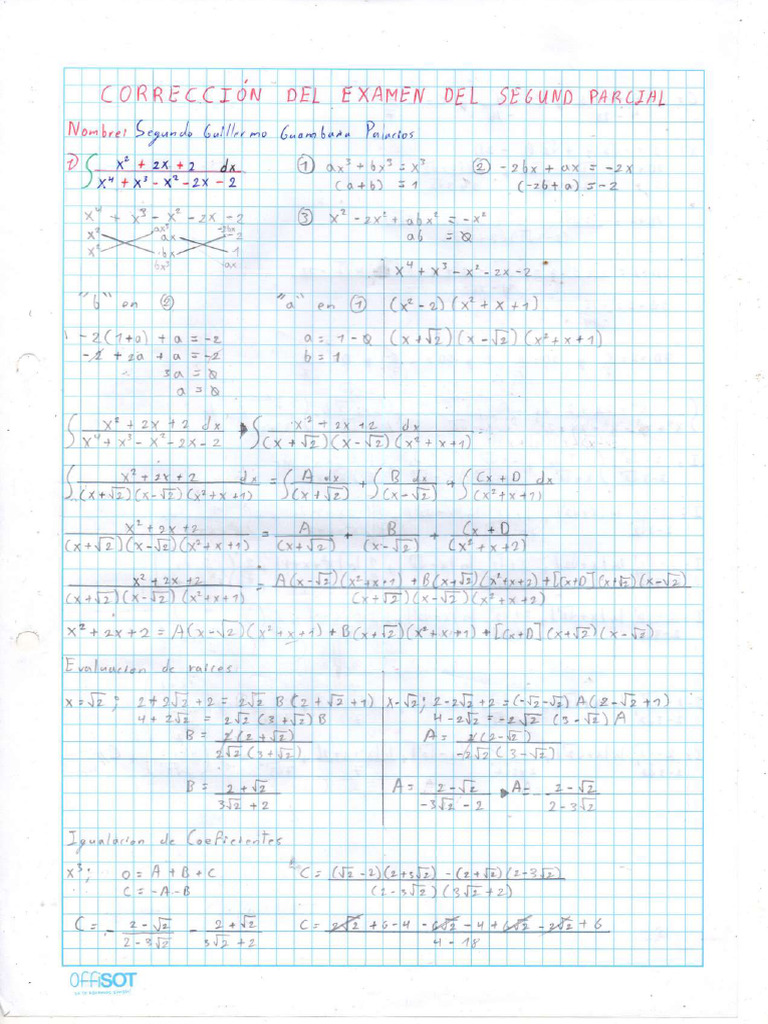 CORRECCIÓN DEL EXAMEN DEL SEGUND PARCIAL
Nombre: Segundo Guillermo Guambaña Palacios
1) ∫ x² + 2x + 2 dx / x⁴ + x³ - x² - 2x - 2
① ax³ + bx³ = x³
(a+b) = 1
② -2bx + ax = -2x
(-2b+a) = -2
x⁴ + x³ - x² - 2x - 2
x² ax³ ax -2bx -2
x² bx bx³ 1 -ax
③ x² - 2x² + abx² = -x²
ab = 0
x⁴ + x³ - x² - 2x - 2
"b" en ②
"a" en ①
(x²-2)(x²+x+1)
-2(1+a) + a = -2
a = 1 - 0
(x+√2)(x-√2)(x²+x+1)
-2 + 2a + a = -2
b = 1
3a = 0
a = 0
∫ x² + 2x + 2 dx / x⁴ + x³ - x² - 2x - 2 ▸ ∫ x² + 2x + 2 dx / (x+√2)(x-√2)(x²+x+1) =
∫ x² + 2x + 2 dx / (x+√2)(x-√2)(x²+x+1) = ∫ A dx / (x+√2) + ∫ B dx / (x-√2) + ∫ Cx + D dx / (x²+x+1)
x² + 2x + 2 / (x+√2)(x-√2)(x²+x+1) = A / (x+√2) + B / (x-√2) + Cx + D / (x²+x+2)
x² + 2x + 2 / (x+√2)(x-√2)(x²+x+1) = A(x-√2)(x²+x+1) + B(x+√2)(x²+x+2) + [Cx+D](x+√2)(x-√2) / (x+√2)(x-√2)(x²+x+2)
x² + 2x + 2 = A(x-√2)(x²+x+1) + B(x+√2)(x²+x+1) + [Cx+D](x+√2)(x-√2)
Evaluacion de raices
x=√2; 2+2√2+2 = 2√2 B(2+√2+1)
4+2√2 = 2√2(3+√2)B
B = 2(2+√2) / 2√2(3+√2)
B = 2+√2 / 3√2+2
x-√2; 2-2√2+2 = (-√2-√2) A(2-√2+1)
4-2√2 = -2√2 (3-√2)A
A = 2(2-√2) / -2√2(3-√2)
A = 2-√2 / -3√2-2 ▸ A = - 2-√2 / 2-3√2
Igualacion de Coeficientes
x³; 0 = A + B + C
C = -A - B
C = (√2-2)(2+3√2) - (2+√2)(2-3√2) / (2-3√2)(3√2+2)
C = - 2-√2 / 2-3√2 - 2+√2 / 3√2+2
C = 2√2 + 6 - 4 - 6√2 - 4 + 6√2 - 2√2 + 6 / 4 - 18
OffiSOT